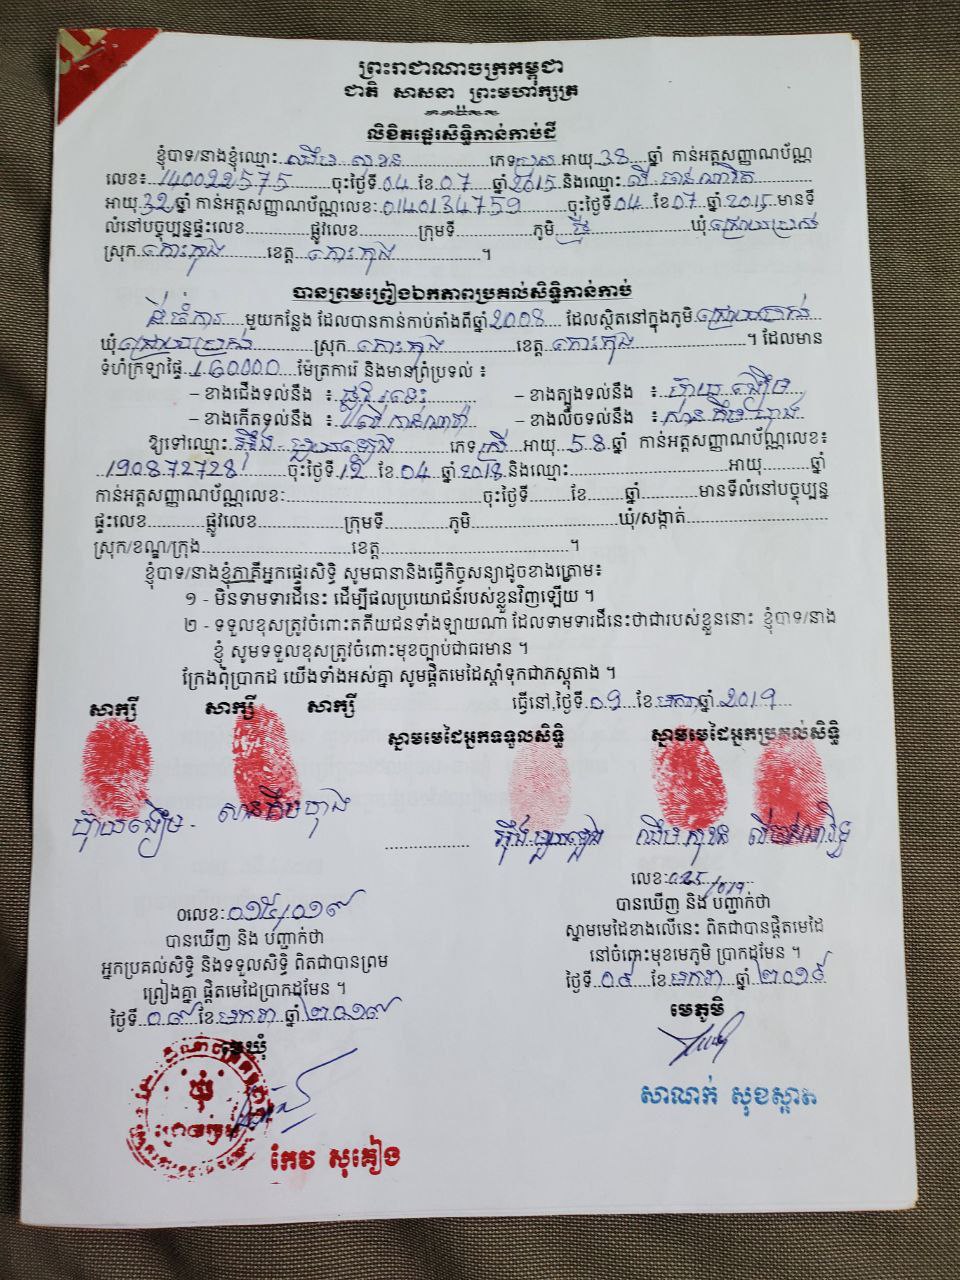 ព្រះរាជាណាចក្រកម្ពុជា
ជាតិ សាសនា ព្រះមហាក្សត្រ
លិខិតផ្ទេរសិទ្ធិកាន់កាប់ដី
ខ្ញុំបាទ/នាងខ្ញុំឈ្មោះ ឈឹម សុខន ភេទ ប្រុស អាយុ 38 ឆ្នាំ កាន់អត្តសញ្ញាណប័ណ្ណ
លេខ៖ 140022575 ចុះថ្ងៃទី 04 ខែ 07 ឆ្នាំ 2015 និងឈ្មោះ លី ចាន់ណារិត
អាយុ 32 ឆ្នាំ កាន់អត្តសញ្ញាណប័ណ្ណលេខ: 0140134759 ចុះថ្ងៃទី 04 ខែ 07 ឆ្នាំ 2015 មានទី
លំនៅបច្ចុប្បន្នផ្ទះលេខ ផ្លូវលេខ ក្រុមទី ភូមិ ថ្មី ឃុំ ជ្រោយប្រស់
ស្រុក កោះកុង ខេត្ត កោះកុង ។
បានព្រមព្រៀងឯកភាពប្រគល់សិទ្ធិកាន់កាប់
ដីចំការ មួយកន្លែង ដែលបានកាន់កាប់តាំងពីឆ្នាំ 2008 ដែលស្ថិតនៅក្នុងភូមិ ជ្រោយប្រស់
ឃុំ ជ្រោយប្រស់ ស្រុក កោះកុង ខេត្ត កោះកុង ។ ដែលមាន
ទំហំក្រឡាផ្ទៃ 160000 ម៉ែត្រការ៉េ និងមានព្រំប្រទល់ ៖
– ខាងជើងទល់នឹង ៖ ផ្លូវរទេះ – ខាងត្បូងទល់នឹង ៖ ប៉ាយ ងឿម
– ខាងកើតទល់នឹង ៖ – ខាងលិចទល់នឹង ៖ សានគឹមហុង
ឱ្យទៅឈ្មោះ អ៊ឹង ហួយឡេង ភេទ ស្រី អាយុ 58 ឆ្នាំ កាន់អត្តសញ្ញាណប័ណ្ណលេខ៖
190872728 ចុះថ្ងៃទី 12 ខែ 04 ឆ្នាំ 2018 និងឈ្មោះ អាយុ ឆ្នាំ
កាន់អត្តសញ្ញាណប័ណ្ណលេខ: ចុះថ្ងៃទី ខែ ឆ្នាំ មានទីលំនៅបច្ចុប្បន្ន
ផ្ទះលេខ ផ្លូវលេខ ក្រុមទី ភូមិ ឃុំ/សង្កាត់
ស្រុក/ខណ្ឌ/ក្រុង ខេត្ត ។
ខ្ញុំបាទ/នាងខ្ញុំភាគីអ្នកផ្ទេរសិទ្ធិ សូមធានានិងធ្វើកិច្ចសន្យាដូចខាងក្រោម៖
១ - មិនទាមទារដីនេះ ដើម្បីផលប្រយោជន៍របស់ខ្លួនវិញឡើយ ។
២ - ទទួលខុសត្រូវចំពោះតតីយជនទាំងឡាយណា ដែលទាមទារដីនេះថាជារបស់ខ្លួននោះ ខ្ញុំបាទ/នាង
ខ្ញុំ សូមទទួលខុសត្រូវចំពោះមុខច្បាប់ជាធរមាន ។
ក្រែងពុំប្រាកដ យើងទាំងអស់គ្នា សូមផ្តិតមេដៃស្តាំទុកជាភស្តុតាង ។
ធ្វើនៅ,ថ្ងៃទី 09 ខែ មករា ឆ្នាំ 2019
សាក្សី សាក្សី សាក្សី
ស្នាមមេដៃអ្នកទទួលសិទ្ធិ ស្នាមមេដៃអ្នកប្រគល់សិទ្ធិ
ប៉ាយ ងឿម សានគឹមហុង អ៊ឹង ហួយឡេង ឈឹម សុខន លីចាន់ណារិទ្ធ
លេខ:
បានឃើញ និង បញ្ជាក់ថា
ស្នាមមេដៃខាងលើនេះ ពិតជាបានផ្តិតមេដៃ
នៅចំពោះមុខមេភូមិ ប្រាកដមែន ។
ថ្ងៃទី ០៩ ខែ មករា ឆ្នាំ ២០១៩
មេភូមិ
សាណក់ សុខស្អាត
លេខ: ០១៥/០១៩
បានឃើញ និង បញ្ជាក់ថា
អ្នកប្រគល់សិទ្ធិ និងទទួលសិទ្ធិ ពិតជាបានព្រម
ព្រៀងគ្នា ផ្តិតមេដៃប្រាកដមែន ។
ថ្ងៃទី ០៩ ខែ មករា ឆ្នាំ ២០១៩
មេឃុំ
ឃុំ
កែវ សុគៀង